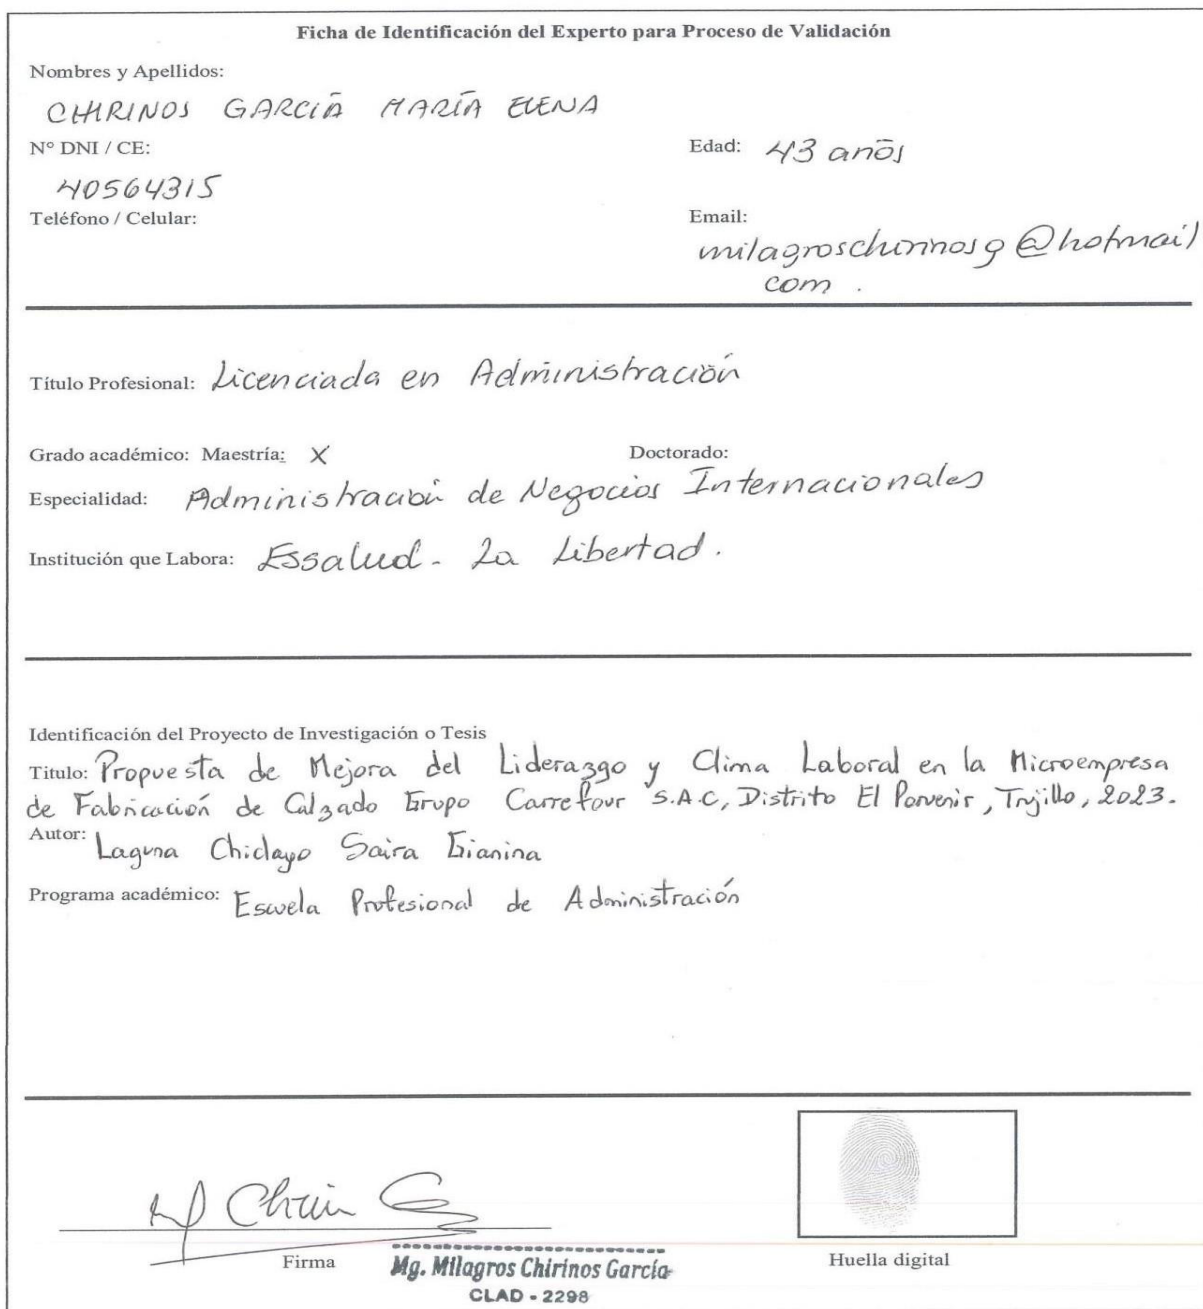 Ficha de Identificación del Experto para Proceso de Validación
Nombres y Apellidos:
CHIRINOS GARCÍA MARÍA ELENA
N° DNI / CE:
Edad: 43 años
40564315
Teléfono / Celular:
Email:
milagroschirinosg@hotmail
com.
Título Profesional: Licenciada en Administración
Grado académico: Maestría: X
Doctorado:
Especialidad: Administración de Negocios Internacionales
Institución que Labora: Essalud - La Libertad.
Identificación del Proyecto de Investigación o Tesis
Titulo: Propuesta de Mejora del Liderazgo y Clima Laboral en la Microempresa
de Fabricación de Calzado Grupo Carrefour S.A.C, Distrito El Porvenir, Trujillo, 2023.
Autor: Laguna Chiclayo Saira Gianina
Programa académico: Escuela Profesional de Administración
Firma
Mg. Milagros Chirinos García
CLAD - 2298
Huella digital